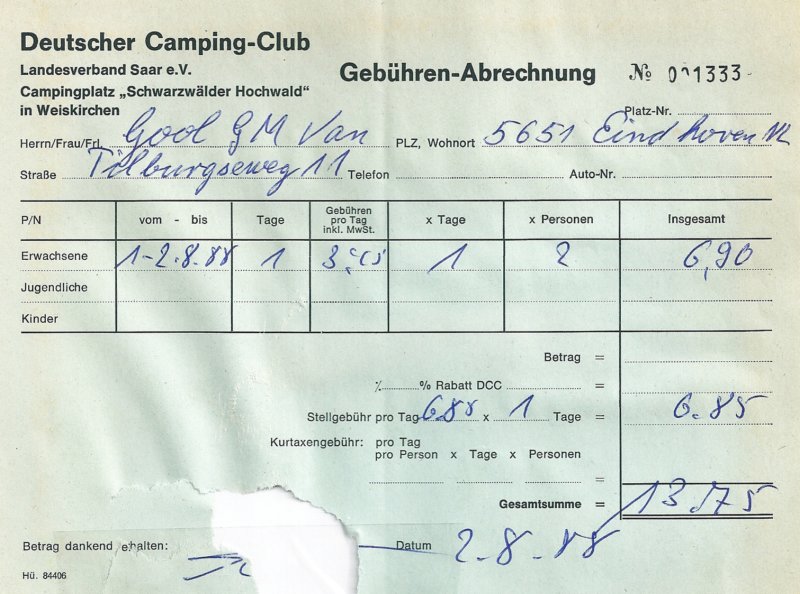 Deutscher Camping-Club
Landesverband Saar e.V.
Campingplatz „Schwarzwälder Hochwald"
in Weiskirchen
Gebühren-Abrechnung № 001333
Platz-Nr.
Herrn/Frau/Frl. Gool G M Van PLZ, Wohnort 5651 Eindhoven NL
Straße Tilburgseweg 11 Telefon Auto-Nr.
P/N vom - bis Tage Gebühren pro Tag inkl. MwSt. x Tage x Personen Insgesamt
Erwachsene 1-2.8.88 1 3,45 1 2 6,90
Jugendliche
Kinder
Betrag =
% Rabatt DCC =
Stellgebühr pro Tag x 1 Tage = 6.85
Kurtaxengebühr: pro Tag
pro Person x Tage x Personen
=
Gesamtsumme = 13.75
Betrag dankend erhalten: Datum 2.8.88
Hü. 84406